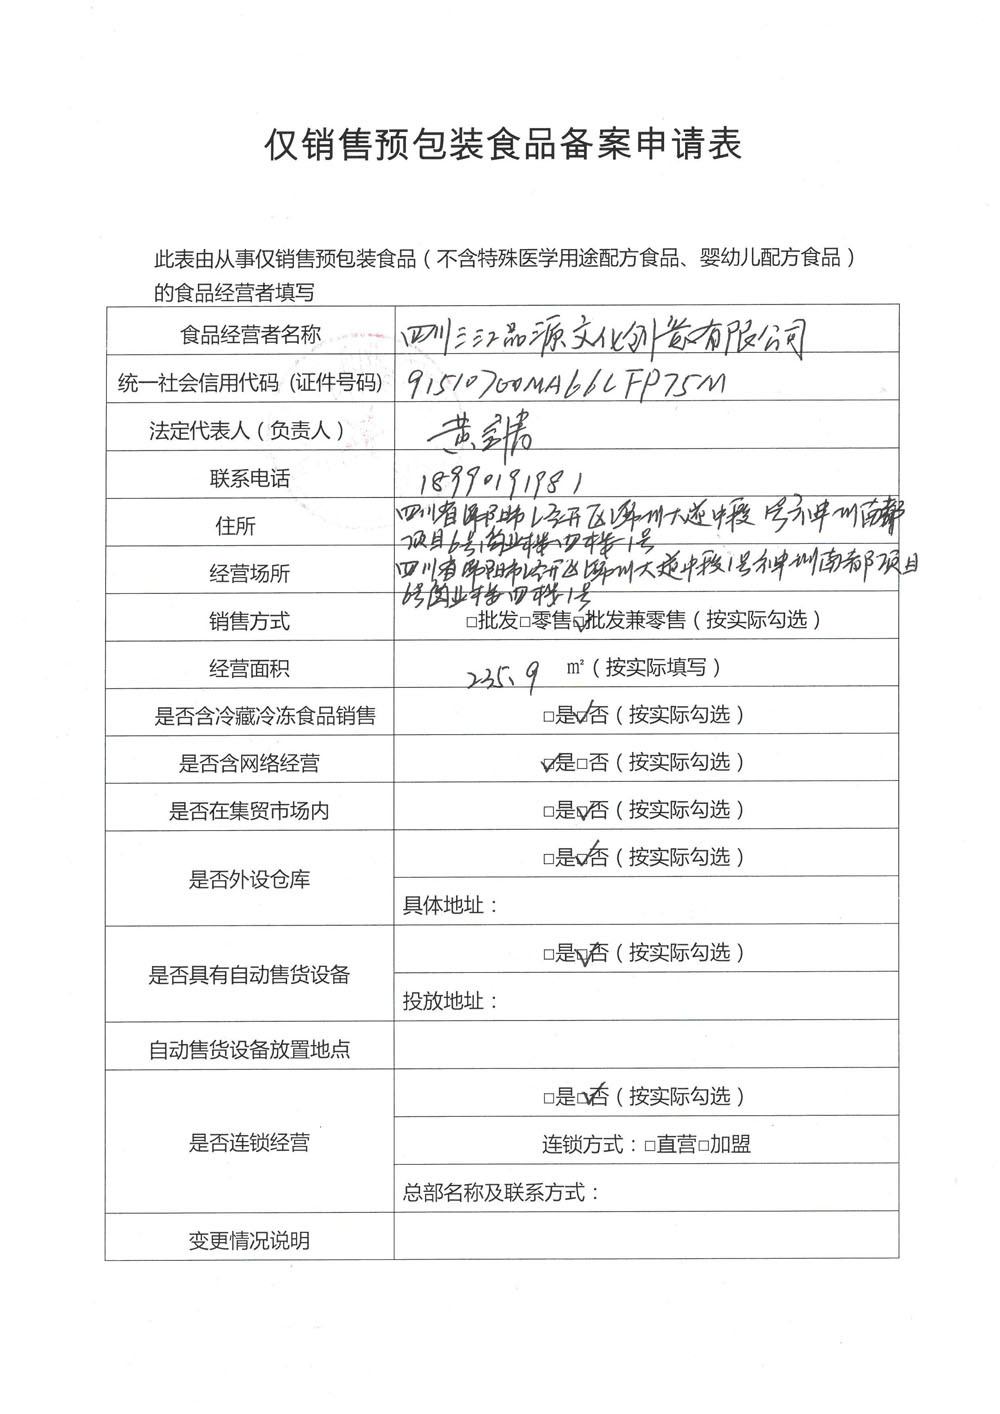 仅销售预包装食品备案申请表
此表由从事仅销售预包装食品（不含特殊医学用途配方食品、婴幼儿配方食品）
的食品经营者填写
食品经营者名称 四川三江品源文化创意有限公司
统一社会信用代码（证件号码） 91510700MA66LFP75M
法定代表人（负责人） 黄
联系电话 18990191981
住所 四川省绵阳市经开区绵州大道中段1号神州南都
项目6号商业楼四楼1号
经营场所 四川省绵阳市经开区绵州大道中段1号神州南都项目
6号商业楼四楼1号
销售方式 □批发□零售☑批发兼零售（按实际勾选）
经营面积 235.9 ㎡（按实际填写）
是否含冷藏冷冻食品销售 □是☑否（按实际勾选）
是否含网络经营 ☑是□否（按实际勾选）
是否在集贸市场内 □是☑否（按实际勾选）
是否外设仓库 □是☑否（按实际勾选）
具体地址：
是否具有自动售货设备 □是☑否（按实际勾选）
投放地址：
自动售货设备放置地点
是否连锁经营 □是☑否（按实际勾选）
连锁方式：□直营□加盟
总部名称及联系方式：
变更情况说明